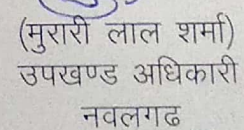 (मुरारी लाल शर्मा)
उपखण्ड अधिकारी
नवलगढ